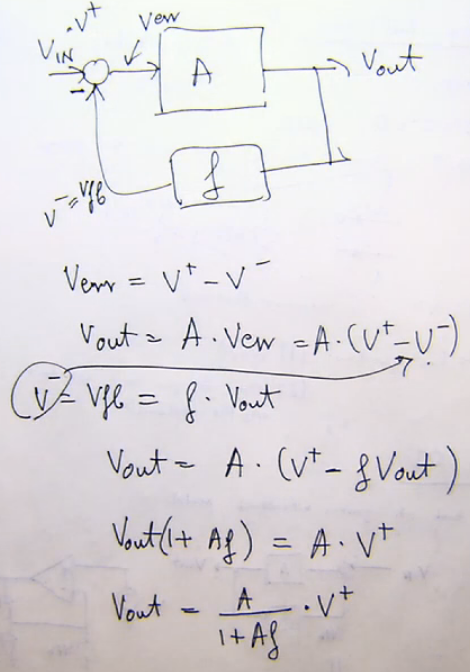 V⁺
Verr
VIN
A
Vout
-
f
V⁻=Vfb
Verr = V⁺ - V⁻
Vout = A · Verr = A · (V⁺ - V⁻)
V⁻ = Vfb = f · Vout
Vout = A · (V⁺ - f Vout)
Vout(1 + Af) = A · V⁺
Vout = A/(1 + Af) · V⁺